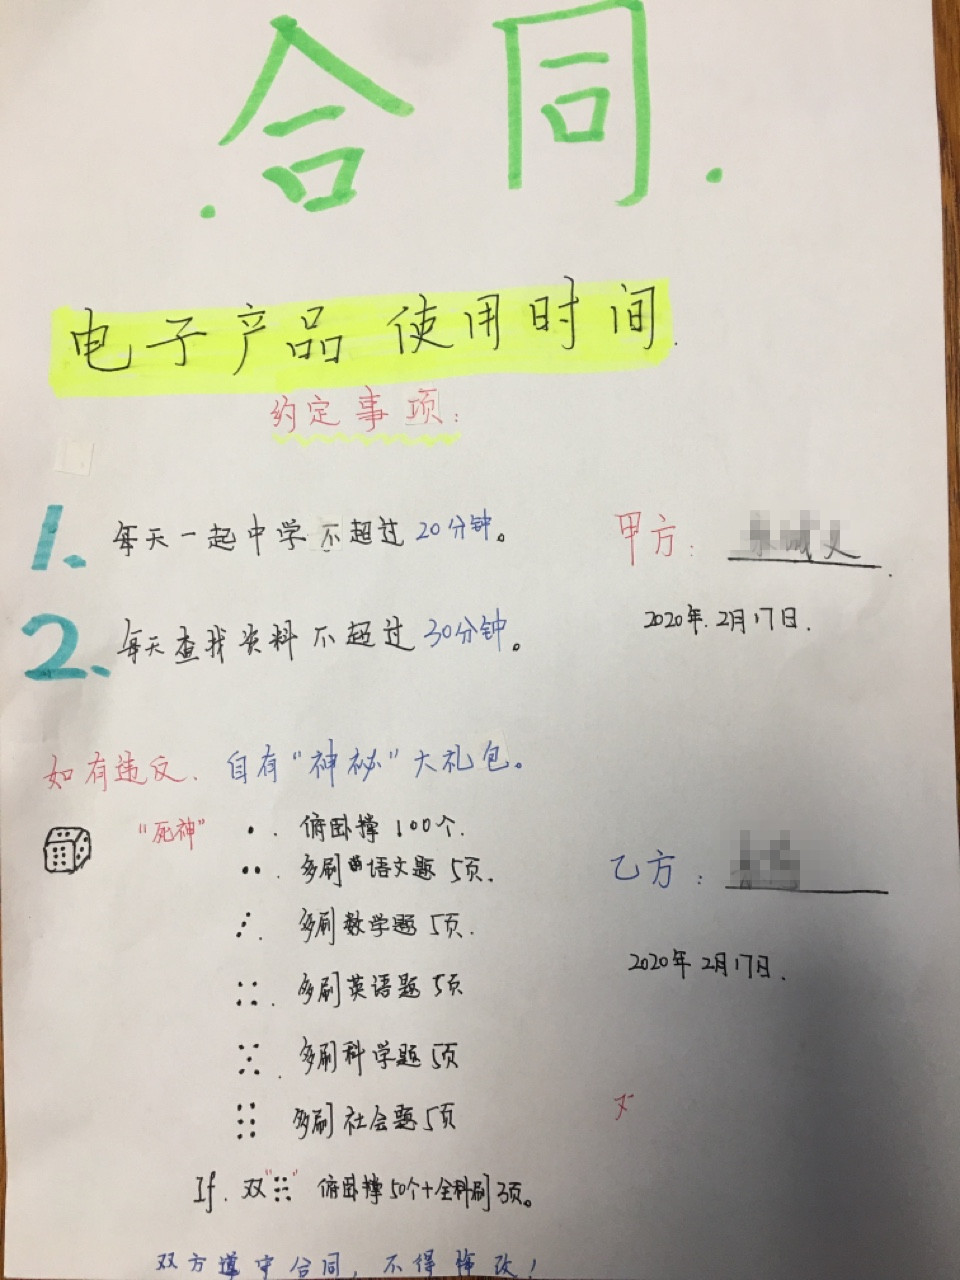 合同
电子产品 使用时间.
约定事项:
1. 每天一起中学不超过20分钟。
甲方:
2020年.2月17日.
2. 每天查找资料不超过30分钟。
如有违反. 自有“神秘”大礼包。
“死神”
俯卧撑 100个.
多刷语文题 5页.
乙方:
多刷数学题 5页.
2020年2月17日.
多刷英语题 5页
多刷科学题 5页
多刷社会题 5页
If. 双“ ” 俯卧撑50个+全科刷3页。
双方遵守合同, 不得修改!